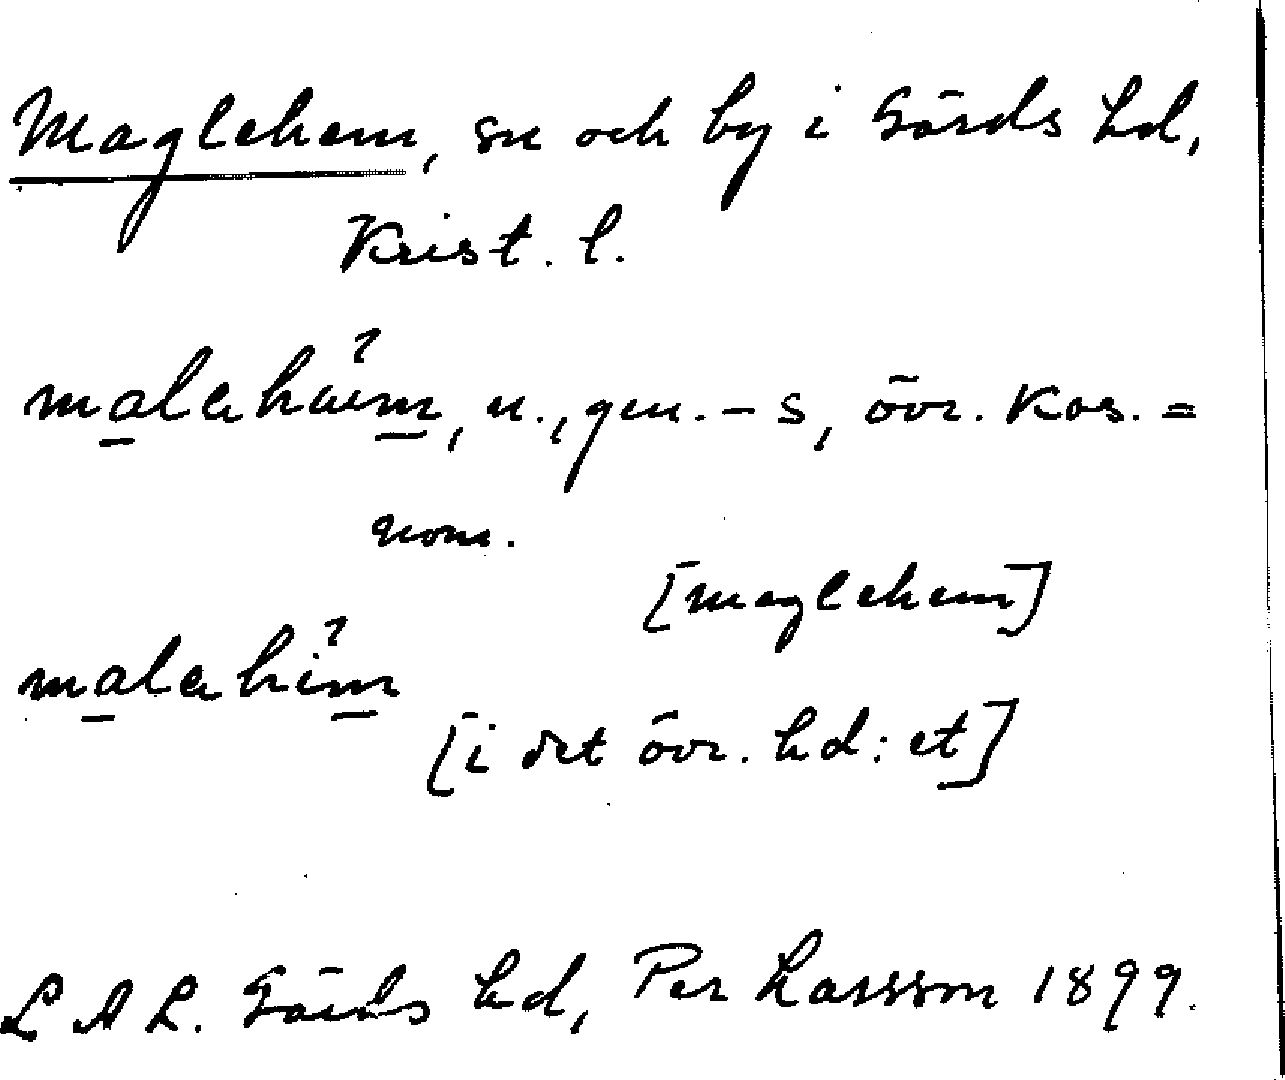 Maglehem, sn och by i Gärds hd,
Krist. l.
malahäim, n., gen. -s, övr. kas. =
nom.
[maglehem]
malahim
[i det övr. hd: et]
LAL. Gärds hd, Per Larsson 1899.